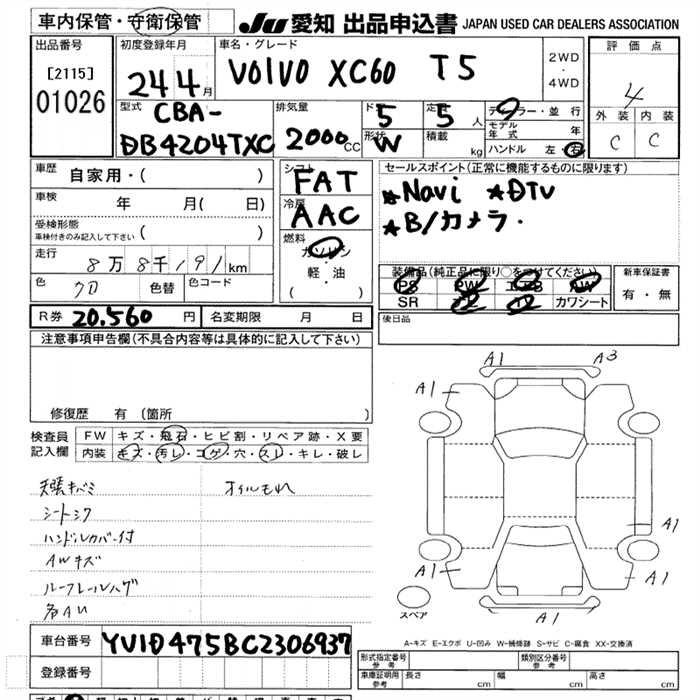 車内保管・守衛保管
JU 愛知 出品申込書 JAPAN USED CAR DEALERS ASSOCIATION
出品番号
[2115]
01026
初度登録年月
24年4月
車名・グレード
VOLVO XC60 T5
2WD
・
4WD
評価点
4
外装 内装
C C
型式
CBA-
DB4204TXC
排気量
2000cc
ドア
5
形状
W
定員
5人
積載
kg
ディーラー・並行
モデル年式 年
ハンドル 左・右
車歴
自家用・( )
車検 年 月( 日)
受検形態
車検付きのみ記入して下さい ( )
走行
8万8千191km
色
クロ
色替
色コード
シフト
FAT
冷房
AAC
燃料
ガソリン
軽・油
( )
セールスポイント(正常に機能するものに限ります)
★Navi ★DTV
★B/カメラ・
装備品(純正品に限り○をつけてください)
PS PW エアB AW
SR カワシート
新車保証書
有・無
後日品
R券 20,560円
名変期限 月 日
注意事項申告欄(不具合内容等は具体的に記入して下さい)
修復歴 有 (箇所 )
検査員
記入欄
FW キズ・飛石・ヒビ割・リペア跡・X要
内装 キズ・汚レ・コゲ・穴・スレ・キレ・破レ
天張キバミ
シートシワ
ハンドルカバー付
AWキズ
ルーフレールハゲ
各AU
オイルもれ
A1 A3
A1 A1
A1
A1 A1
A1
スペア
A-キズ E-エクボ U-凹み W-補修跡 S-サビ C-腐食 XX-交換済
車台番号 YV1DZ475BC2306937
登録番号
形式指定番号
参考
類別区分番号
参考
車庫証明用
参考
長さ cm 幅 cm 高さ cm